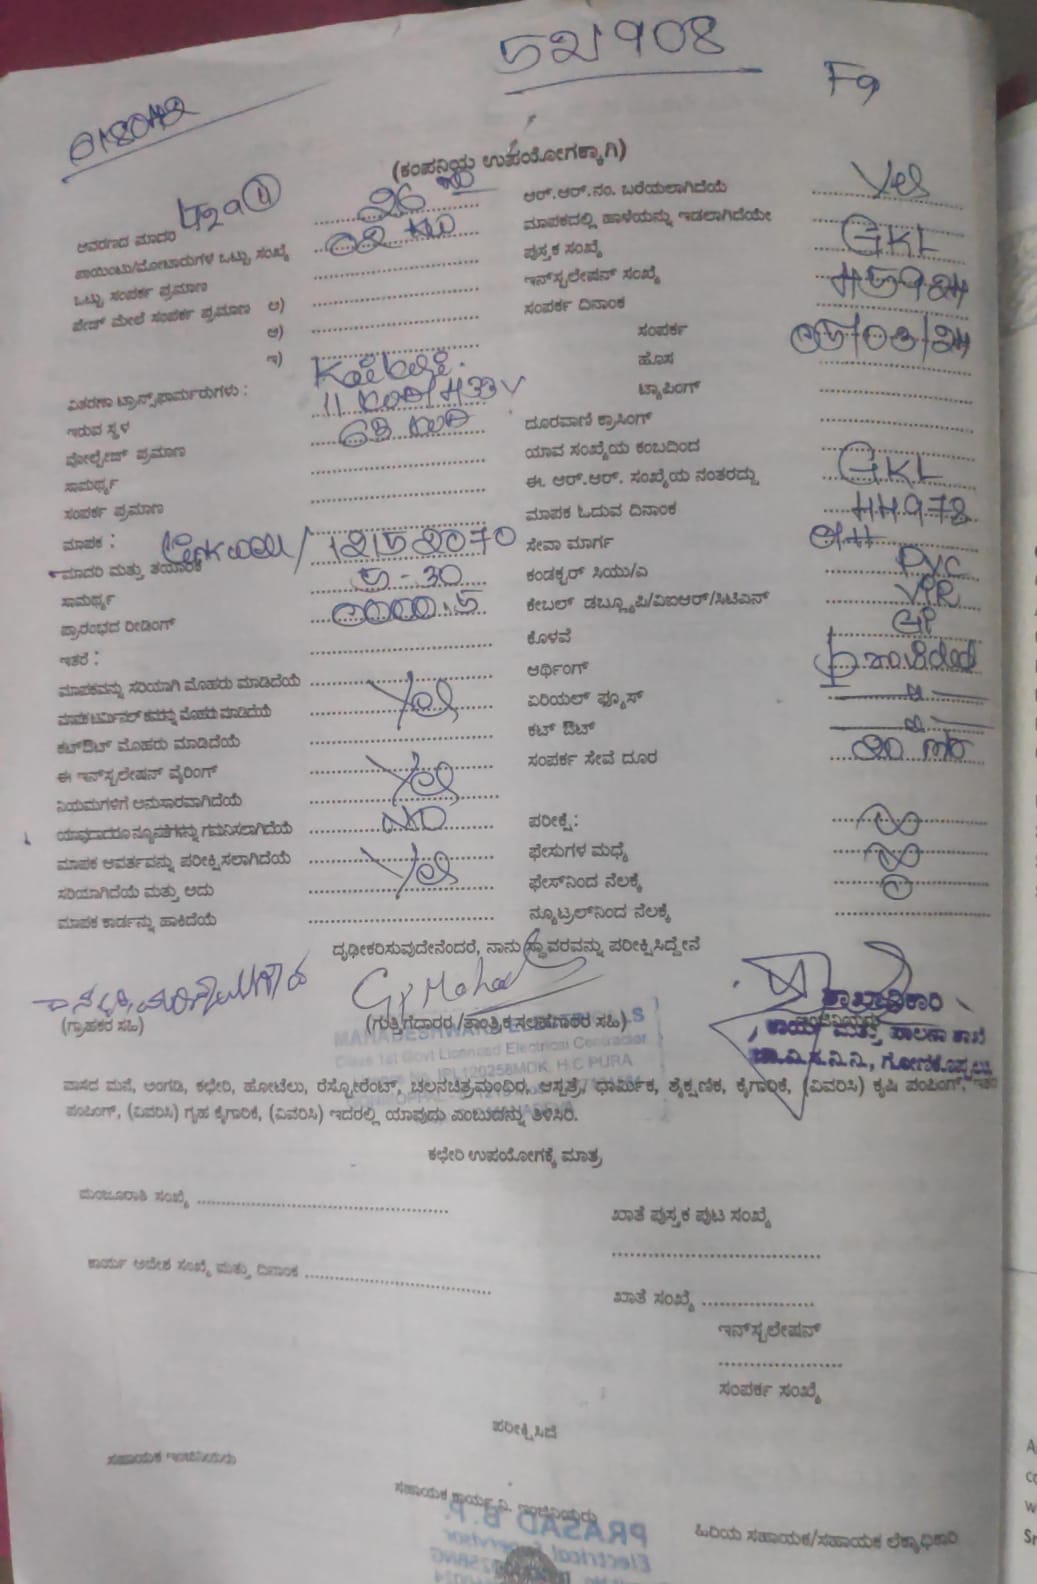 521908
F9
(ಕಂಪನಿಯ ಉಪಯೋಗಕ್ಕಾಗಿ)
ಆವರಣದ ಮಾದರಿ
ಪಾಯಿಂಟು/ಮೋಟಾರುಗಳ ಒಟ್ಟು ಸಂಖ್ಯೆ 26
ಒಟ್ಟು ಸಂಪರ್ಕ ಪ್ರಮಾಣ 02 KW
ಪೇಡ್ ಮೇಲೆ ಸಂಪರ್ಕ ಪ್ರಮಾಣ ಅ)
ಆ)
ಇ)
ವಿತರಣಾ ಟ್ರಾನ್ಸ್‌ಫಾರ್ಮರುಗಳು :
ಇರುವ ಸ್ಥಳ
ವೋಲ್ಟೇಜ್ ಪ್ರಮಾಣ
ಸಾಮರ್ಥ್ಯ
ಸಂಪರ್ಕ ಪ್ರಮಾಣ
ಮಾಪಕ :
ಮಾದರಿ ಮತ್ತು ತಯಾರಿಕೆ / 12152070
ಸಾಮರ್ಥ್ಯ 5-30
ಪ್ರಾರಂಭದ ರೀಡಿಂಗ್ 0000.5
ಇತರೆ :
ಮಾಪಕವನ್ನು ಸರಿಯಾಗಿ ಮೊಹರು ಮಾಡಿದೆಯೆ
ಮಾಪಕ ಟರ್ಮಿನಲ್ ಕವರನ್ನು ಮೊಹರು ಮಾಡಿದೆಯೆ Yes
ಕಟ್‌ಔಟ್ ಮೊಹರು ಮಾಡಿದೆಯೆ
ಈ ಇನ್‌ಸ್ಟಲೇಷನ್ ವೈರಿಂಗ್
ನಿಯಮಗಳಿಗೆ ಅನುಸಾರವಾಗಿದೆಯೆ Yes
ಯಾವುದಾದರೂ ನ್ಯೂನತೆಗಳನ್ನು ಗಮನಿಸಲಾಗಿದೆಯೆ NO
ಮಾಪಕ ಆವರ್ತವನ್ನು ಪರೀಕ್ಷಿಸಲಾಗಿದೆಯೆ
ಸರಿಯಾಗಿದೆಯೆ ಮತ್ತು ಅದು Yes
ಮಾಪಕ ಕಾರ್ಡನ್ನು ಹಾಕಿದೆಯೆ
ಆರ್.ಆರ್.ನಂ. ಬರೆಯಲಾಗಿದೆಯೆ Yes
ಮಾಪಕದಲ್ಲಿ ಹಾಳೆಯನ್ನು ಇಡಲಾಗಿದೆಯೇ
ಪುಸ್ತಕ ಸಂಖ್ಯೆ GKL
ಇನ್‌ಸ್ಟಲೇಷನ್ ಸಂಖ್ಯೆ 45924
ಸಂಪರ್ಕ ದಿನಾಂಕ
ಸಂಪರ್ಕ 05/03/24
ಹೊಸ
ಟ್ಯಾಪಿಂಗ್
ದೂರವಾಣಿ ಕ್ರಾಸಿಂಗ್
ಯಾವ ಸಂಖ್ಯೆಯ ಕಂಬದಿಂದ
ಈ. ಆರ್.ಆರ್. ಸಂಖ್ಯೆಯ ನಂತರದ್ದು GKL
ಮಾಪಕ ಓದುವ ದಿನಾಂಕ 44978
ಸೇವಾ ಮಾರ್ಗ OH
ಕಂಡಕ್ಟರ್ ಸಿಯು/ಎ PVC
ಕೇಬಲ್ ಡಬ್ಲ್ಯೂಪಿ/ವಿಐಆರ್/ಸಿಟಿಎಸ್ VIR
ಕೊಳವೆ GP
ಆರ್ಥಿಂಗ್ Provided
ಏರಿಯಲ್ ಫ್ಯೂಸ್
ಕಟ್ ಔಟ್
ಸಂಪರ್ಕ ಸೇವೆ ದೂರ 20 mtr
ಪರೀಕ್ಷೆ:
ಫೇಸುಗಳ ಮಧ್ಯೆ
ಫೇಸ್‌ನಿಂದ ನೆಲಕ್ಕೆ
ನ್ಯೂಟ್ರಲ್‌ನಿಂದ ನೆಲಕ್ಕೆ
ದೃಢೀಕರಿಸುವುದೇನೆಂದರೆ, ನಾನು ಸ್ಥಾವರವನ್ನು ಪರೀಕ್ಷಿಸಿದ್ದೇನೆ
(ಗ್ರಾಹಕರ ಸಹಿ) (ಗುತ್ತಿಗೆದಾರರ/ತಾಂತ್ರಿಕ ಸಲಹೆಗಾರರ ಸಹಿ)
ಶಾಖಾಧಿಕಾರಿ
ಕಾರ್ಯ ಮತ್ತು ಪಾಲನಾ ಶಾಖೆ
ಚಾ.ವಿ.ಸ.ನಿ.ನಿ., ಗೋಣಿಕೊಪ್ಪಲು
Class 1st Govt Licenced Electrical Contractor
ವಾಸದ ಮನೆ, ಅಂಗಡಿ, ಕಛೇರಿ, ಹೋಟೆಲು, ರೆಸ್ಟೋರೆಂಟ್, ಚಲನಚಿತ್ರಮಂದಿರ, ಆಸ್ಪತ್ರೆ, ಧಾರ್ಮಿಕ, ಶೈಕ್ಷಣಿಕ, ಕೈಗಾರಿಕೆ, (ವಿವರಿಸಿ) ಕೃಷಿ ಪಂಪಿಂಗ್, ಇತರ
ಪಂಪಿಂಗ್, (ವಿವರಿಸಿ) ಗೃಹ ಕೈಗಾರಿಕೆ, (ವಿವರಿಸಿ) ಇದರಲ್ಲಿ ಯಾವುದು ಎಂಬುದನ್ನು ತಿಳಿಸಿರಿ.
ಕಛೇರಿ ಉಪಯೋಗಕ್ಕೆ ಮಾತ್ರ
ಮಂಜೂರಾತಿ ಸಂಖ್ಯೆ
ಖಾತೆ ಪುಸ್ತಕ ಪುಟ ಸಂಖ್ಯೆ
ಕಾರ್ಯ ಆದೇಶ ಸಂಖ್ಯೆ ಮತ್ತು ದಿನಾಂಕ
ಖಾತೆ ಸಂಖ್ಯೆ
ಇನ್‌ಸ್ಟಲೇಷನ್
ಸಂಪರ್ಕ ಸಂಖ್ಯೆ
ಪರೀಕ್ಷಿಸಿದೆ
ಸಹಾಯಕ ಇಂಜಿನಿಯರು
ಸಹಾಯಕ ಕಾರ್ಯ.ನಿ. ಇಂಜಿನಿಯರು
ಹಿರಿಯ ಸಹಾಯಕ/ಸಹಾಯಕ ಲೆಕ್ಕಾಧಿಕಾರಿ
PRASAD B.P.